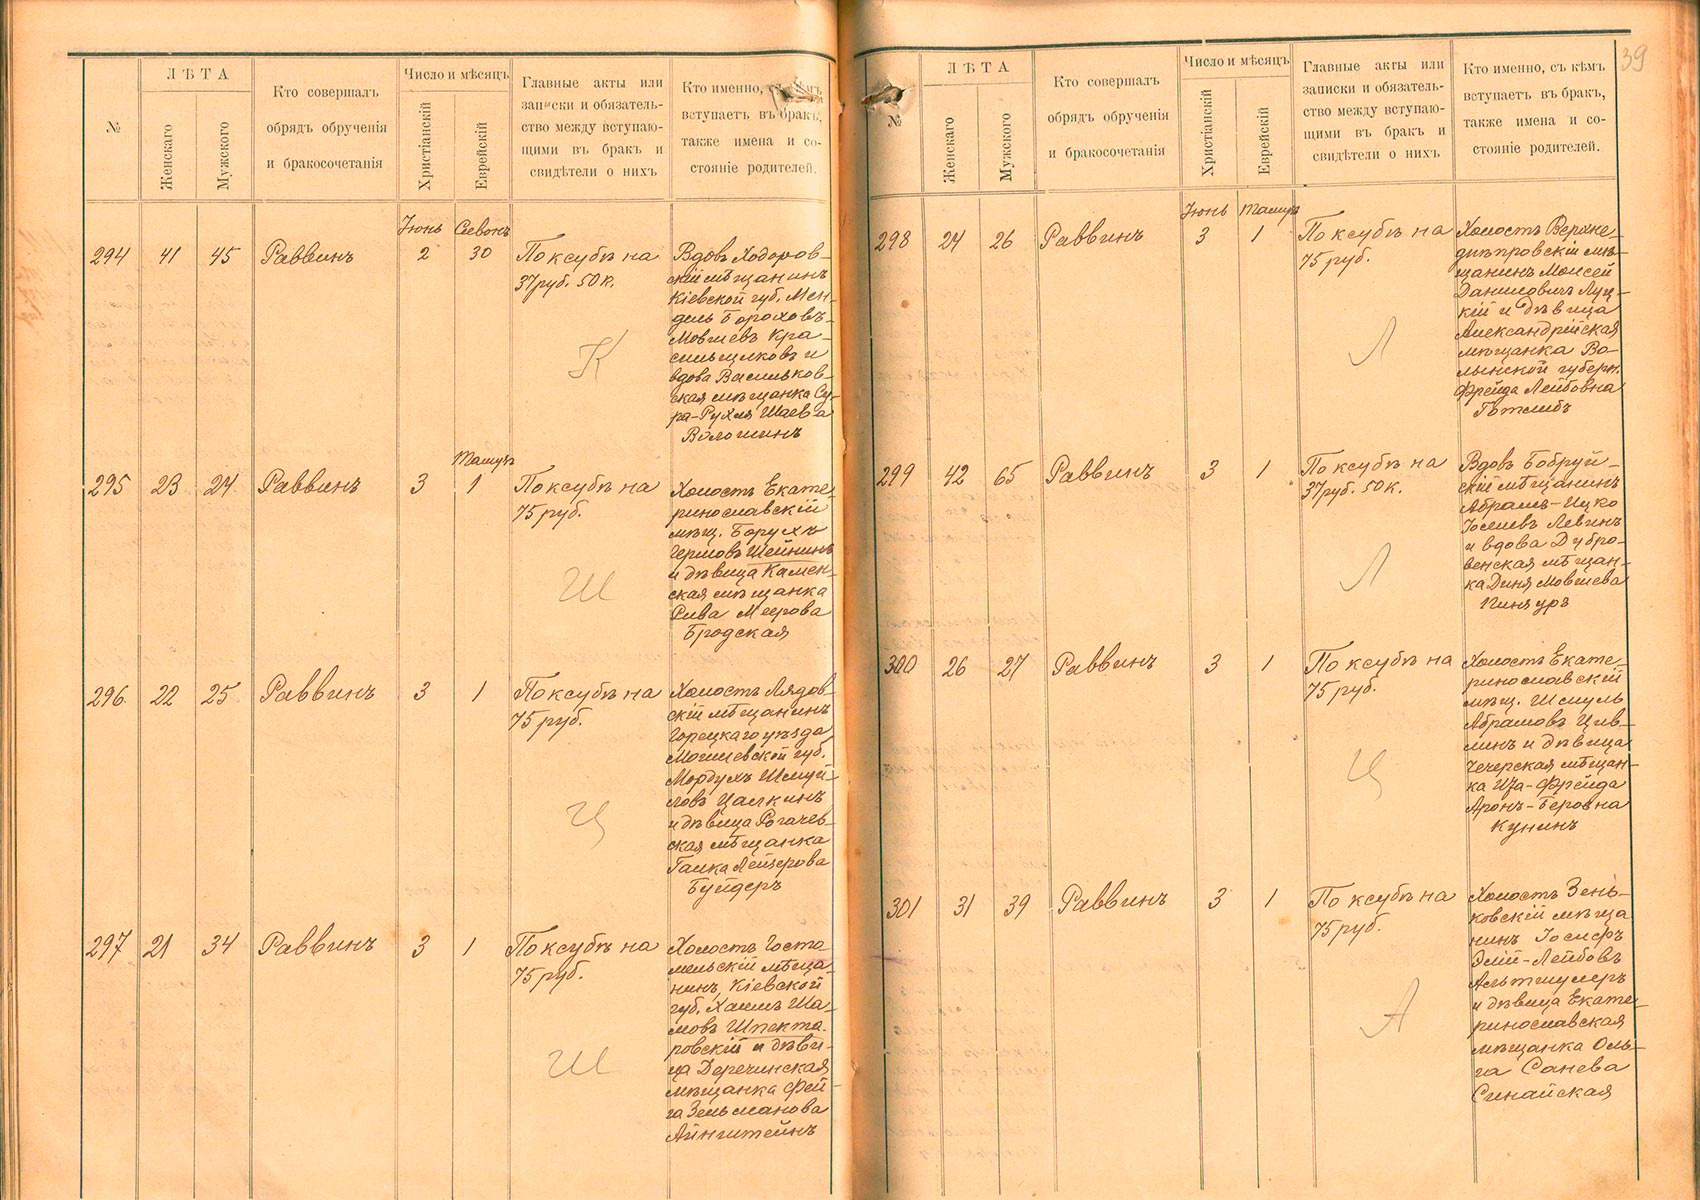 №
ЛѢТА
Женскаго
Мужского
Кто совершалъ
обрядъ обрученія
и бракосочетанія
Число и мѣсяцъ
Христіанскій
Еврейскій
Главные акты или
записки и обязатель-
ство между вступаю-
щими въ бракъ и
свидѣтели о нихъ
Кто именно, съ кѣмъ
вступаетъ въ бракъ,
также имена и со-
стояніе родителей.
Іюнь Сивонъ
294 41 45 Раввинъ 2 30
По ксубѣ на
37 руб. 50 к.
К
Вдовъ Ходоров-
скій мѣщанинъ
Кіевской губ. Мен-
дель Бороховъ-
Мовшевъ Кра-
сильщиковъ и
вдова Васильков
ская мѣщанка Су-
ра-Рухля Шаева
Волошинъ
Тамузъ
295 23 24 Раввинъ 3 1
По ксубѣ на
75 руб.
Ш
Холостъ Екате-
ринославскій
мѣщ. Борухъ
Гершовъ Шейнинъ
и дѣвица Камен-
ская мѣщанка
Рива Меерова
Бродская
296 22 25 Раввинъ 3 1
По ксубѣ на
75 руб.
Ц
Холостъ Лядов-
скій мѣщанинъ
Горецкаго уѣзда
Могилевской губ.
Мордухъ Шмуй-
ловъ Цалкинъ
и дѣвица Рогачев-
ская мѣщанка
Галка Лейзерова
Буйдеръ
297 21 34 Раввинъ 3 1
По ксубѣ на
75 руб.
Ш
Холостъ Госто
мельскій мѣща-
нинъ, Кіевской
губ. Хаимъ Ша-
мовъ Шпекта-
ровскій и дѣви-
ца Деречинская
мѣщанка Фей-
га Зельманова
Айнштейнъ
39
№
ЛѢТА
Женскаго
Мужского
Кто совершалъ
обрядъ обрученія
и бракосочетанія
Число и мѣсяцъ
Христіанскій
Еврейскій
Главные акты или
записки и обязатель-
ство между вступаю-
щими въ бракъ и
свидѣтели о нихъ
Кто именно, съ кѣмъ
вступаетъ въ бракъ,
также имена и со-
стояніе родителей.
Іюнь Тамузъ
298 24 26 Раввинъ 3 1
По ксубѣ на
75 руб.
Л
Холостъ Верхне
днѣпровскій мѣ-
щанинъ Моисей
Даниловичъ Луц-
кій и дѣвица
Александрійская
мѣщанка Во-
лынской губерн.
Фрейда Лейбовна
Готлибъ
299 42 65 Раввинъ 3 1
По ксубѣ на
37 руб. 50 к.
Л
Вдовъ Бобруй-
скій мѣщанинъ
Абрамъ-Ицко
Іоселевъ Левинъ
и вдова Дубро-
венская мѣщан-
ка Диня Мовшева
Кинзуръ
300 26 27 Раввинъ 3 1
По ксубѣ на
75 руб.
Ц
Холостъ Екате-
ринославскій
мѣщ. Шмуль
Абрамовъ Цив-
линъ и дѣвица
Чечерская мѣщан-
ка Ита-Фрейда
Аронъ-Беровна
Кунинъ
301 31 39 Раввинъ 3 1
По ксубѣ на
75 руб.
А
Холостъ Зень-
ковскій мѣща
нинъ Іосифъ
Элій-Лейбовъ
Альтшулеръ
и дѣвица Екате-
ринославская
мѣщанка Оль-
га Санева
Синайская